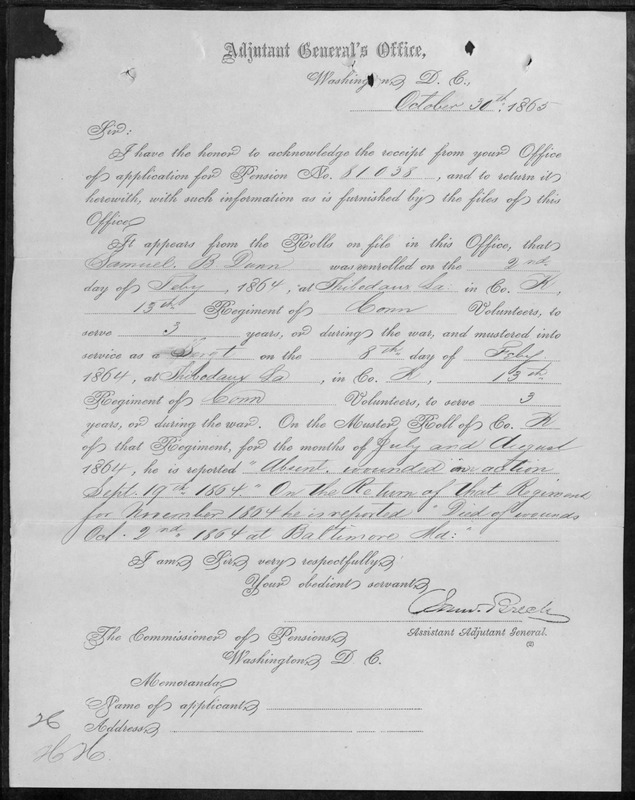 Adjutant General's Office,
Washington, D. C.,
October 30th 1865
Sir:
I have the honor to acknowledge the receipt from your Office
of application for Pension No. 81038, and to return it
herewith, with such information as is furnished by the files of this
Office.
It appears from the Rolls on file in this Office, that
Samuel. B Dunn was enrolled on the 2nd
day of Feby, 1864, at Thibodaux La. in Co. K,
13th Regiment of Conn Volunteers, to
serve 3 years, or during the war, and mustered into
service as a Sergt on the 8th day of Feby
1864, at Thibodaux La, in Co. K, 13th
Regiment of Conn Volunteers, to serve 3
years, or during the war. On the Muster Roll of Co. K
of that Regiment, for the months of July and August
1864, he is reported "Absent. wounded in action
Sept. 19th 1864." On the Return of that Regiment
for November 1864 he is reported "Died of wounds
Oct. 2nd 1864 at Baltimore Md."
I am, Sir, very respectfully,
Your obedient servant,
Saml. Breck
Assistant Adjutant General.
The Commissioner of Pensions,
Washington, D C.
Memoranda
Name of applicant,
Address,